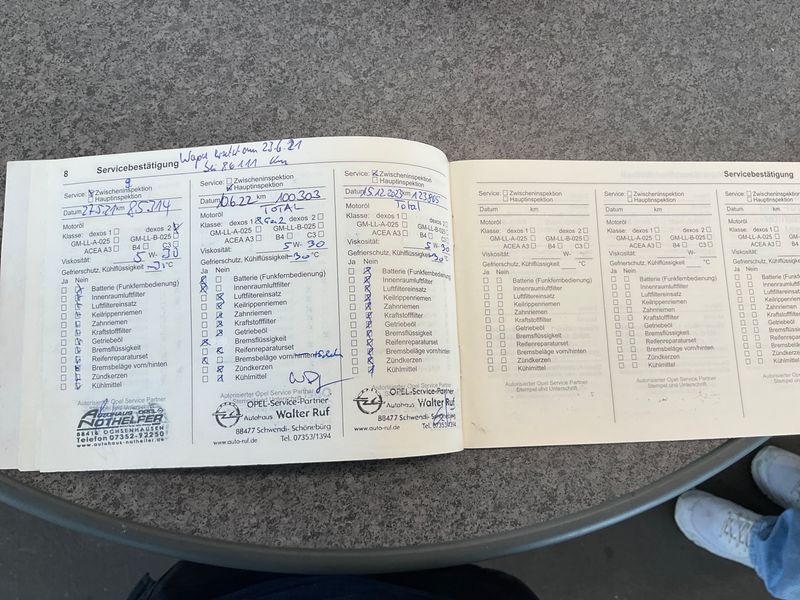 8 Servicebestätigung
23.6.21
86111 km
Service: Zwischeninspektion
Hauptinspektion
Datum 27.5.21 km 85.214
Motoröl
Klasse: dexos 1 dexos 2
GM-LL-A-025 GM-LL-B-025
ACEA A3 B4 C3
Viskosität: 5 W- 30
Gefrierschutz, Kühlflüssigkeit °C
Ja Nein
Batterie (Funkfernbedienung)
Innenraumluftfilter
Luftfiltereinsatz
Keilrippenriemen
Zahnriemen
Kraftstofffilter
Getriebeöl
Bremsflüssigkeit
Reifenreparaturset
Bremsbeläge vorn/hinten
Zündkerzen
Kühlmittel
Autorisierter Opel Service Partner
AUTOHAUS OPEL
NOTHELFER
88416 OCHSENHAUSEN
Telefon 07352-92250
www.autohaus-nothelfer.de
Service: Zwischeninspektion
Hauptinspektion
Datum 06.22 km 100303
Motoröl TOTAL
Klasse: dexos 1 dexos 2
GM-LL-A-025 GM-LL-B-025
ACEA A3 B4 C3
Viskosität: 5 W- 30
Gefrierschutz, Kühlflüssigkeit -30 °C
Ja Nein
Batterie (Funkfernbedienung)
Innenraumluftfilter
Luftfiltereinsatz
Keilrippenriemen
Zahnriemen
Kraftstofffilter
Getriebeöl
Bremsflüssigkeit
Reifenreparaturset
Bremsbeläge vorn/hinten
Zündkerzen
Kühlmittel
Autorisierter Opel Service Partner
OPEL-Service-Partner
Autohaus Walter Ruf
88477 Schwendi- Schönebürg
www.auto-ruf.de Tel. 07353/1394
Service: Zwischeninspektion
Hauptinspektion
Datum 15.12.2023 km 123865
Motoröl Total
Klasse: dexos 1 dexos 2
GM-LL-A-025 GM-LL-B-025
ACEA A3 B4 C3
Viskosität: 5 W- 30
Gefrierschutz, Kühlflüssigkeit -30 °C
Ja Nein
Batterie (Funkfernbedienung)
Innenraumluftfilter
Luftfiltereinsatz
Keilrippenriemen
Zahnriemen
Kraftstofffilter
Getriebeöl
Bremsflüssigkeit
Reifenreparaturset
Bremsbeläge vorn/hinten
Zündkerzen
Kühlmittel
Autorisierter Opel Service Partner
OPEL-Service-Partner
Autohaus Walter Ruf
88477 Schwendi- Schönebürg
www.auto-ruf.de Tel. 07353/1394
Servicebestätigung
Service: Zwischeninspektion
Hauptinspektion
Datum km
Motoröl
Klasse: dexos 1 dexos 2
GM-LL-A-025 GM-LL-B-025
ACEA A3 B4 C3
Viskosität: W-
Gefrierschutz, Kühlflüssigkeit °C
Ja Nein
Batterie (Funkfernbedienung)
Innenraumluftfilter
Luftfiltereinsatz
Keilrippenriemen
Zahnriemen
Kraftstofffilter
Getriebeöl
Bremsflüssigkeit
Reifenreparaturset
Bremsbeläge vorn/hinten
Zündkerzen
Kühlmittel
Autorisierter Opel Service Partner
Stempel und Unterschrift
Service: Zwischeninspektion
Hauptinspektion
Datum km
Motoröl
Klasse: dexos 1 dexos 2
GM-LL-A-025 GM-LL-B-025
ACEA A3 B4 C3
Viskosität: W-
Gefrierschutz, Kühlflüssigkeit °C
Ja Nein
Batterie (Funkfernbedienung)
Innenraumluftfilter
Luftfiltereinsatz
Keilrippenriemen
Zahnriemen
Kraftstofffilter
Getriebeöl
Bremsflüssigkeit
Reifenreparaturset
Bremsbeläge vorn/hinten
Zündkerzen
Kühlmittel
Autorisierter Opel Service Partner
Stempel und Unterschrift
Service: Zwischeninspektion
Datum
Motoröl
Klasse: dexos 1
GM-LL-A-025
ACEA A3
Viskosität:
Gefrierschutz, Kühlflüssigkeit
Ja Nein